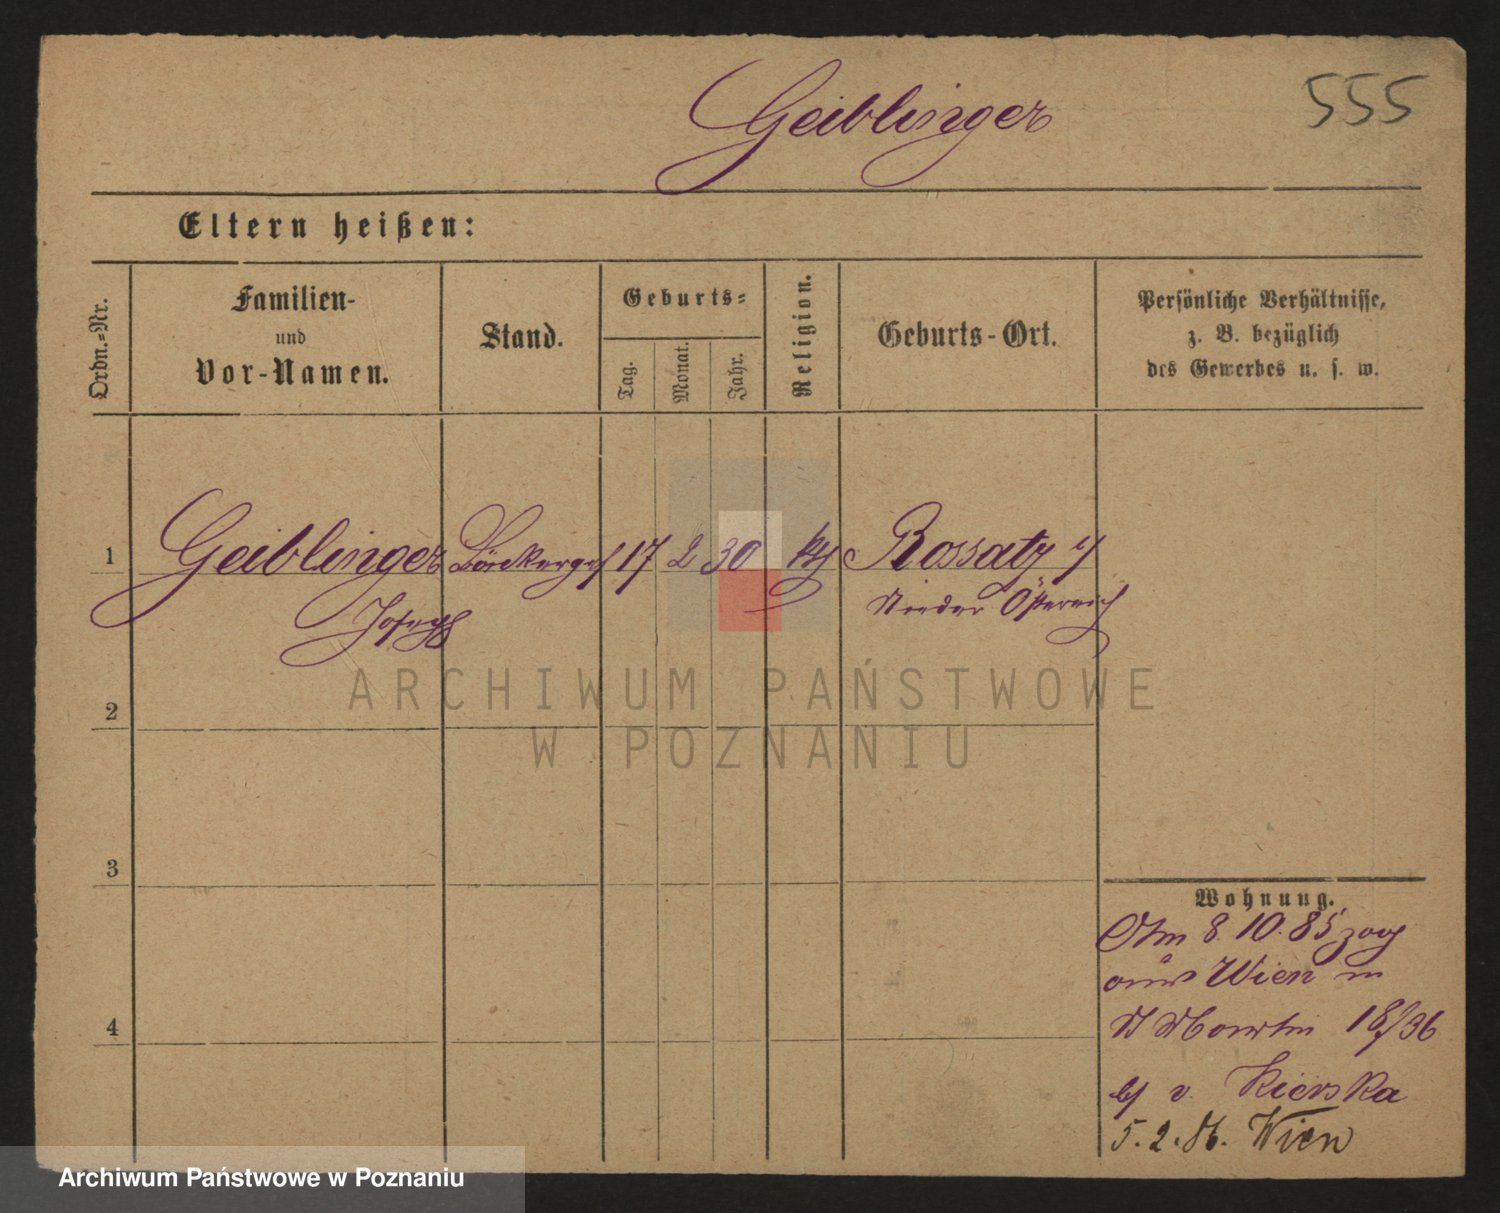 Geiblinger
555
Eltern heißen:
Ordn.-Nr.
Familien-
und
Vor-Namen.
Stand.
Geburts-
Tag.
Monat.
Jahr.
Religion.
Geburts-Ort.
Persönliche Verhältnisse,
z. B. bezüglich
des Gewerbes u. s. w.
1
Geiblinger
Joseph
17
2
30
kth
Rossatz
Nieder Österreich
2
3
4
Wohnung.
Am 8.10.85 zog
aus Wien in
St Martin 18/36
b/ v. Kierska
5.2.86. Wien
ARCHIWUM PAŃSTWOWE
W POZNANIU
Archiwum Państwowe w Poznaniu